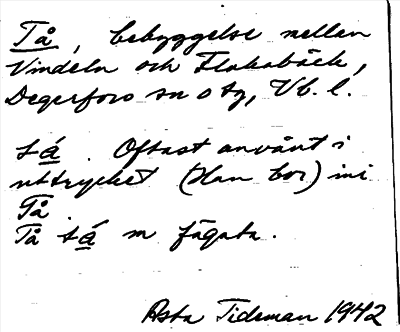 Tå, bebyggelse mellan
Vindeln och Flakabäck,
Degerfors sn o tg, Vb. l.
tá. Oftast använt i
uttrycket (Han bor) ini
Tå
Tå tá m fägata.
Asta Tideman 1942